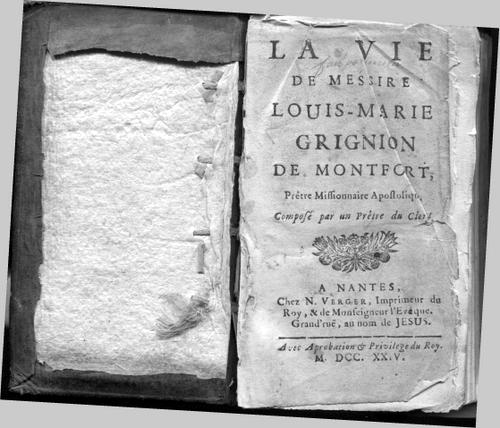 LA VIE
DE MESSIRE
LOUIS-MARIE
GRIGNION
DE MONTFORT,
Prêtre Missionnaire Apostolique,
Composé par un Prêtre du Clergé
A NANTES,
Chez N. VERGER, Imprimeur du
Roy, & de Monseigneur l'Evêque.
Grand'ruë, au nom de JESUS.
Avec Aprobation & Privilege du Roy.
M. DCC. XX.V.